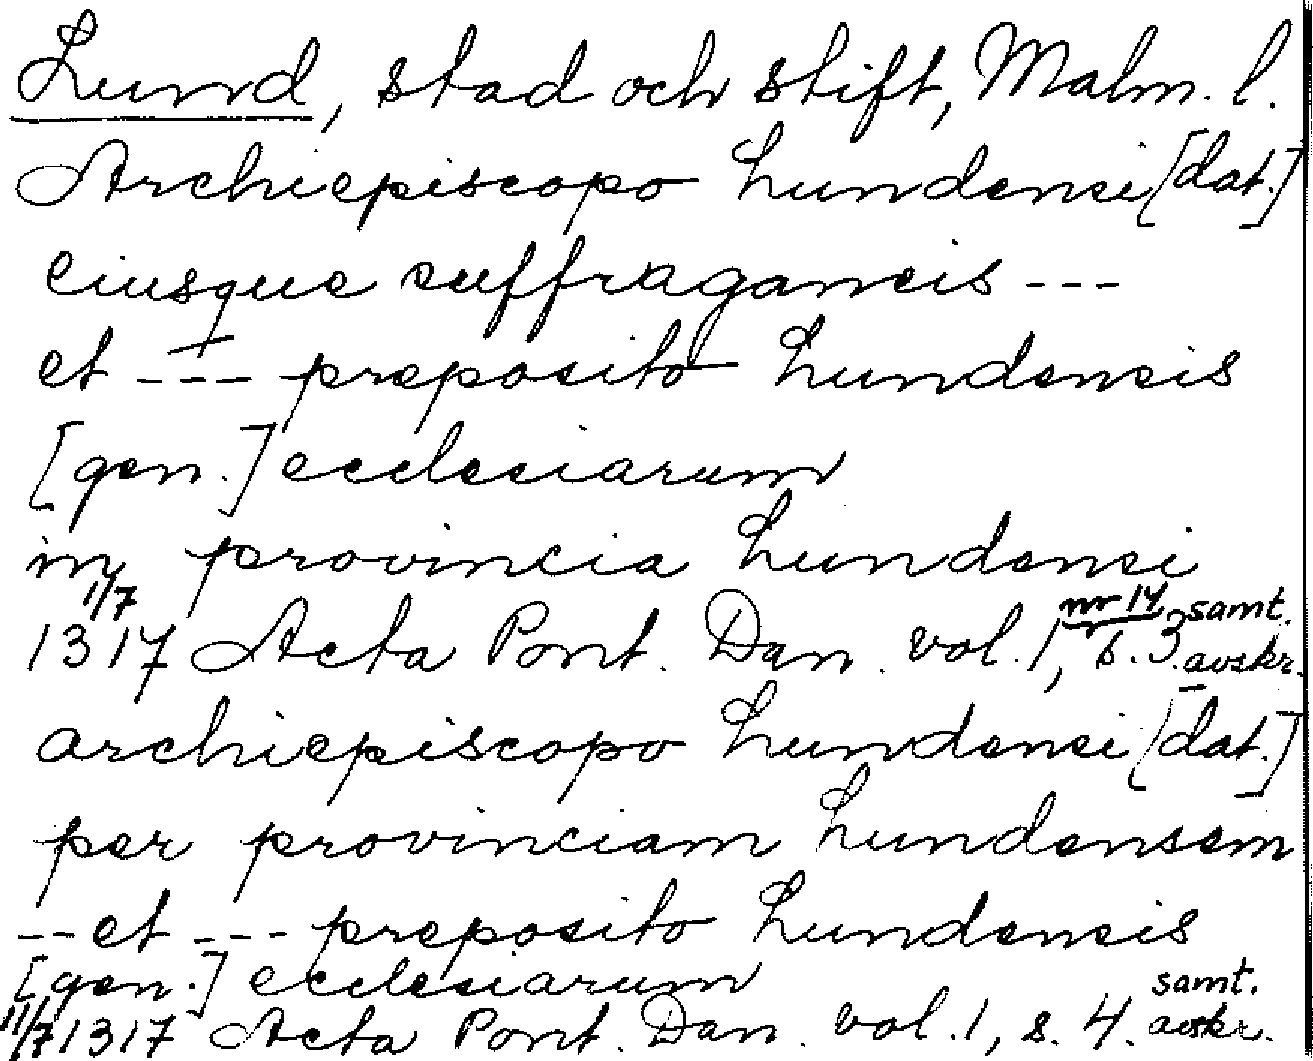 Lund, stad och stift, Malm. l.
Archiepiscopo Lundensi [dat.]
eiusque suffraganeis ---
et --- preposito Lundensis
[gen.] ecclesiarum
in provincia Lundensi
11/7 1317 Acta Pont. Dan. vol. 1, nr 14 s. 3 samt. avskr.
archiepiscopo Lundensi [dat.]
per provinciam Lundensem
-- et --- preposito Lundensis
[gen.] ecclesiarum
11/7 1317 Acta Pont. Dan. vol. 1, s. 4. samt. avskr.